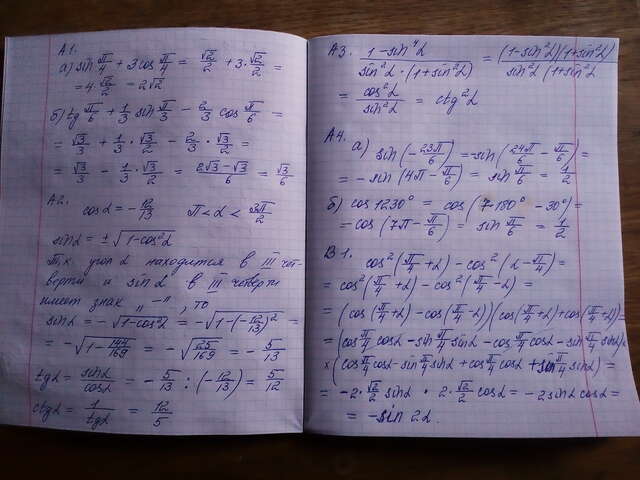 А1.
а) sin π/4 + 3cos π/4 = √2/2 + 3·√2/2 =
= 4 √2/2 = 2√2
б) tg π/6 + 1/3 sin π/3 - 2/3 cos π/6 =
= √3/3 + 1/3 · √3/2 - 2/3 · √3/2 =
= √3/3 - 1/3 · √3/2 = (2√3 - √3)/6 = √3/6
А2.
cosα = -12/13 π < α < 3π/2
sinα = ±√(1-cos²α)
Т.к. угол α находится в III чет-
верти и sinα в III четверти
имеет знак „-", то
sinα = -√(1-cos²α) = -√(1-(-12/13)²) =
= -√(1-144/169) = -√(25/169) = -5/13
tgα = sinα/cosα = -5/13 : (-12/13) = 5/12
ctgα = 1/tgα = 12/5
А3. (1-sin⁴α)/(sin²α·(1+sin²α)) = (1-sin²α)(1+sin²α)/(sin²α(1+sin²α)
= cos²α/sin²α = ctg²α
А4.
а) sin(-23π/6) = -sin(24π/6 - π/6) =
= -sin(4π - π/6) = sin π/6 = 1/2
б) cos 1230° = cos(7·180° - 30°) =
= cos(7π - π/6) = sin π/6 = 1/2
В1. cos²(π/4 + α) - cos²(α - π/4) =
= cos²(π/4 + α) - cos²(π/4 - α) =
= (cos(π/4 + α) - cos(π/4 - α))(cos(π/4 + α) + cos(π/4 + α)) =
= (cos π/4 cosα - sin π/4 sinα - cos π/4 cosα - sin π/4 sinα) ×
× (cos π/4 cosα - sin π/4 sinα + cos π/4 cosα + sin π/4 sinα) =
= -2·√2/2 sinα · 2·√2/2 cosα = -2sinα cosα =
= -sin 2α.